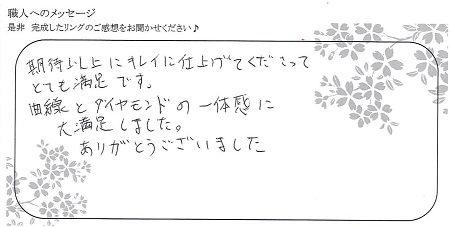 職人へのメッセージ
是非 完成したリングのご感想をお聞かせください♪
期待以上にキレイに仕上げてくださって
とても満足です。
曲線とダイヤモンドの一体感に
大満足しました。
ありがとうございました